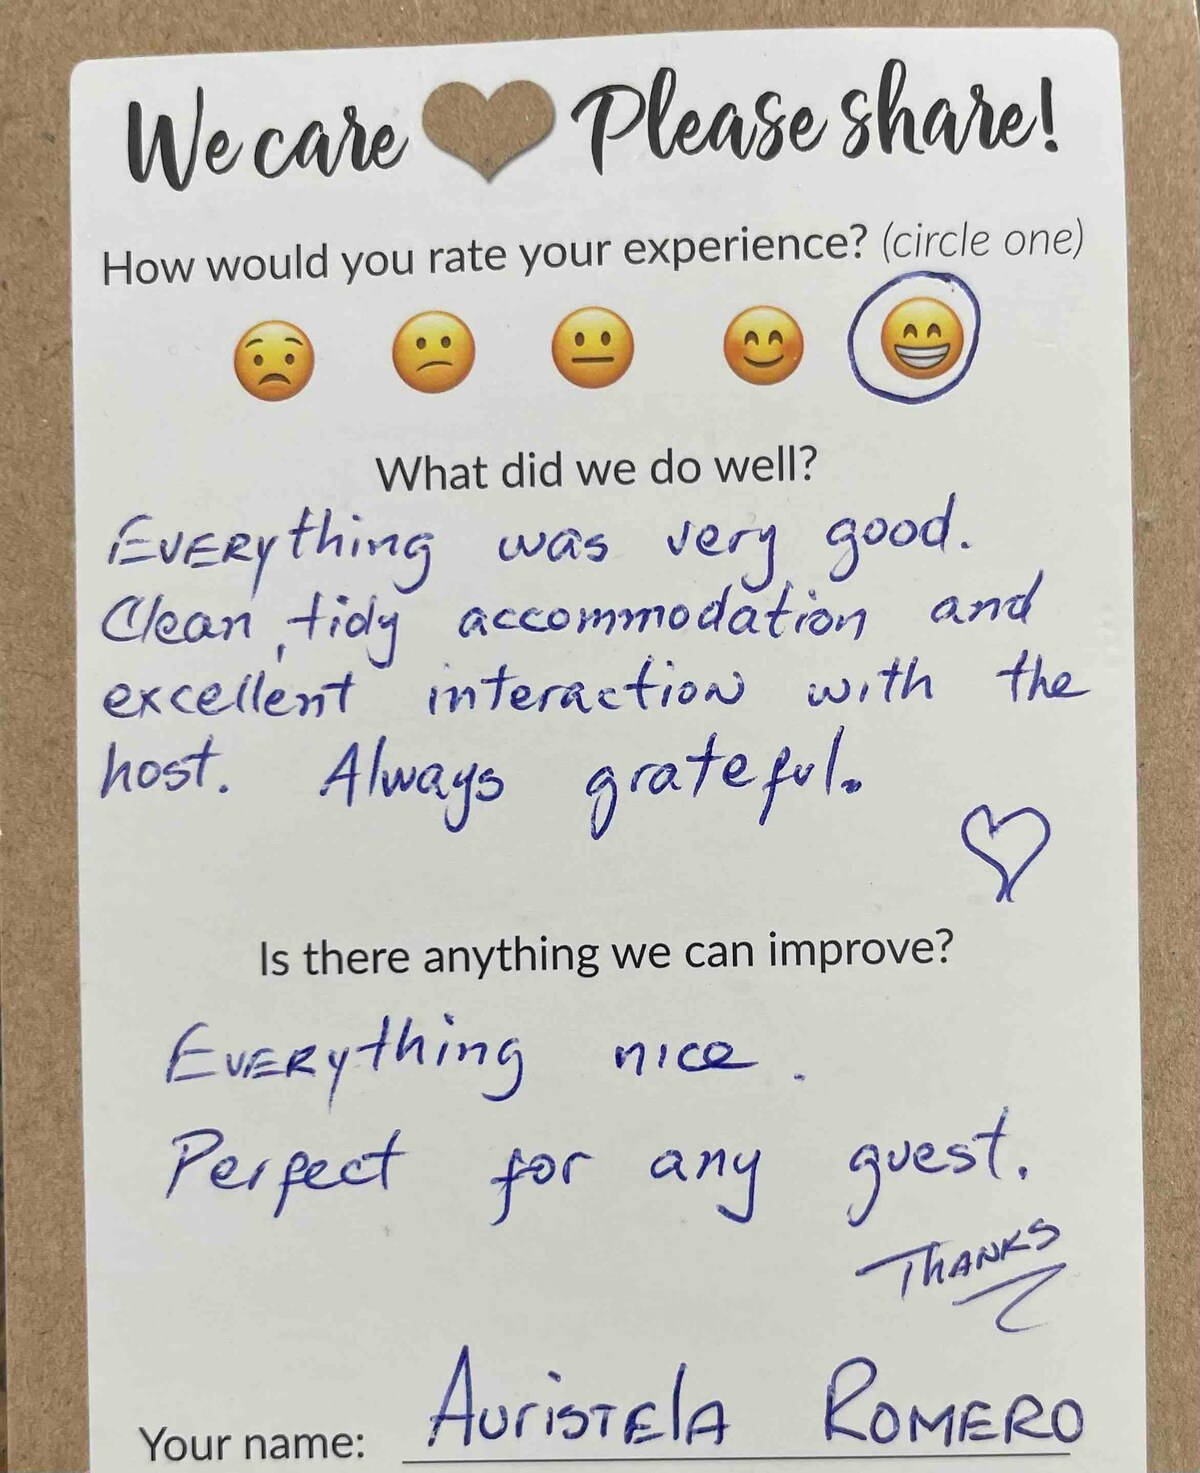 We care Please share!
How would you rate your experience? (circle one)
What did we do well?
Everything was very good.
Clean, tidy accommodation and
excellent interaction with the
host. Always grateful.
Is there anything we can improve?
Everything nice.
Perfect for any guest.
THANKS
Your name: Auristela Romero